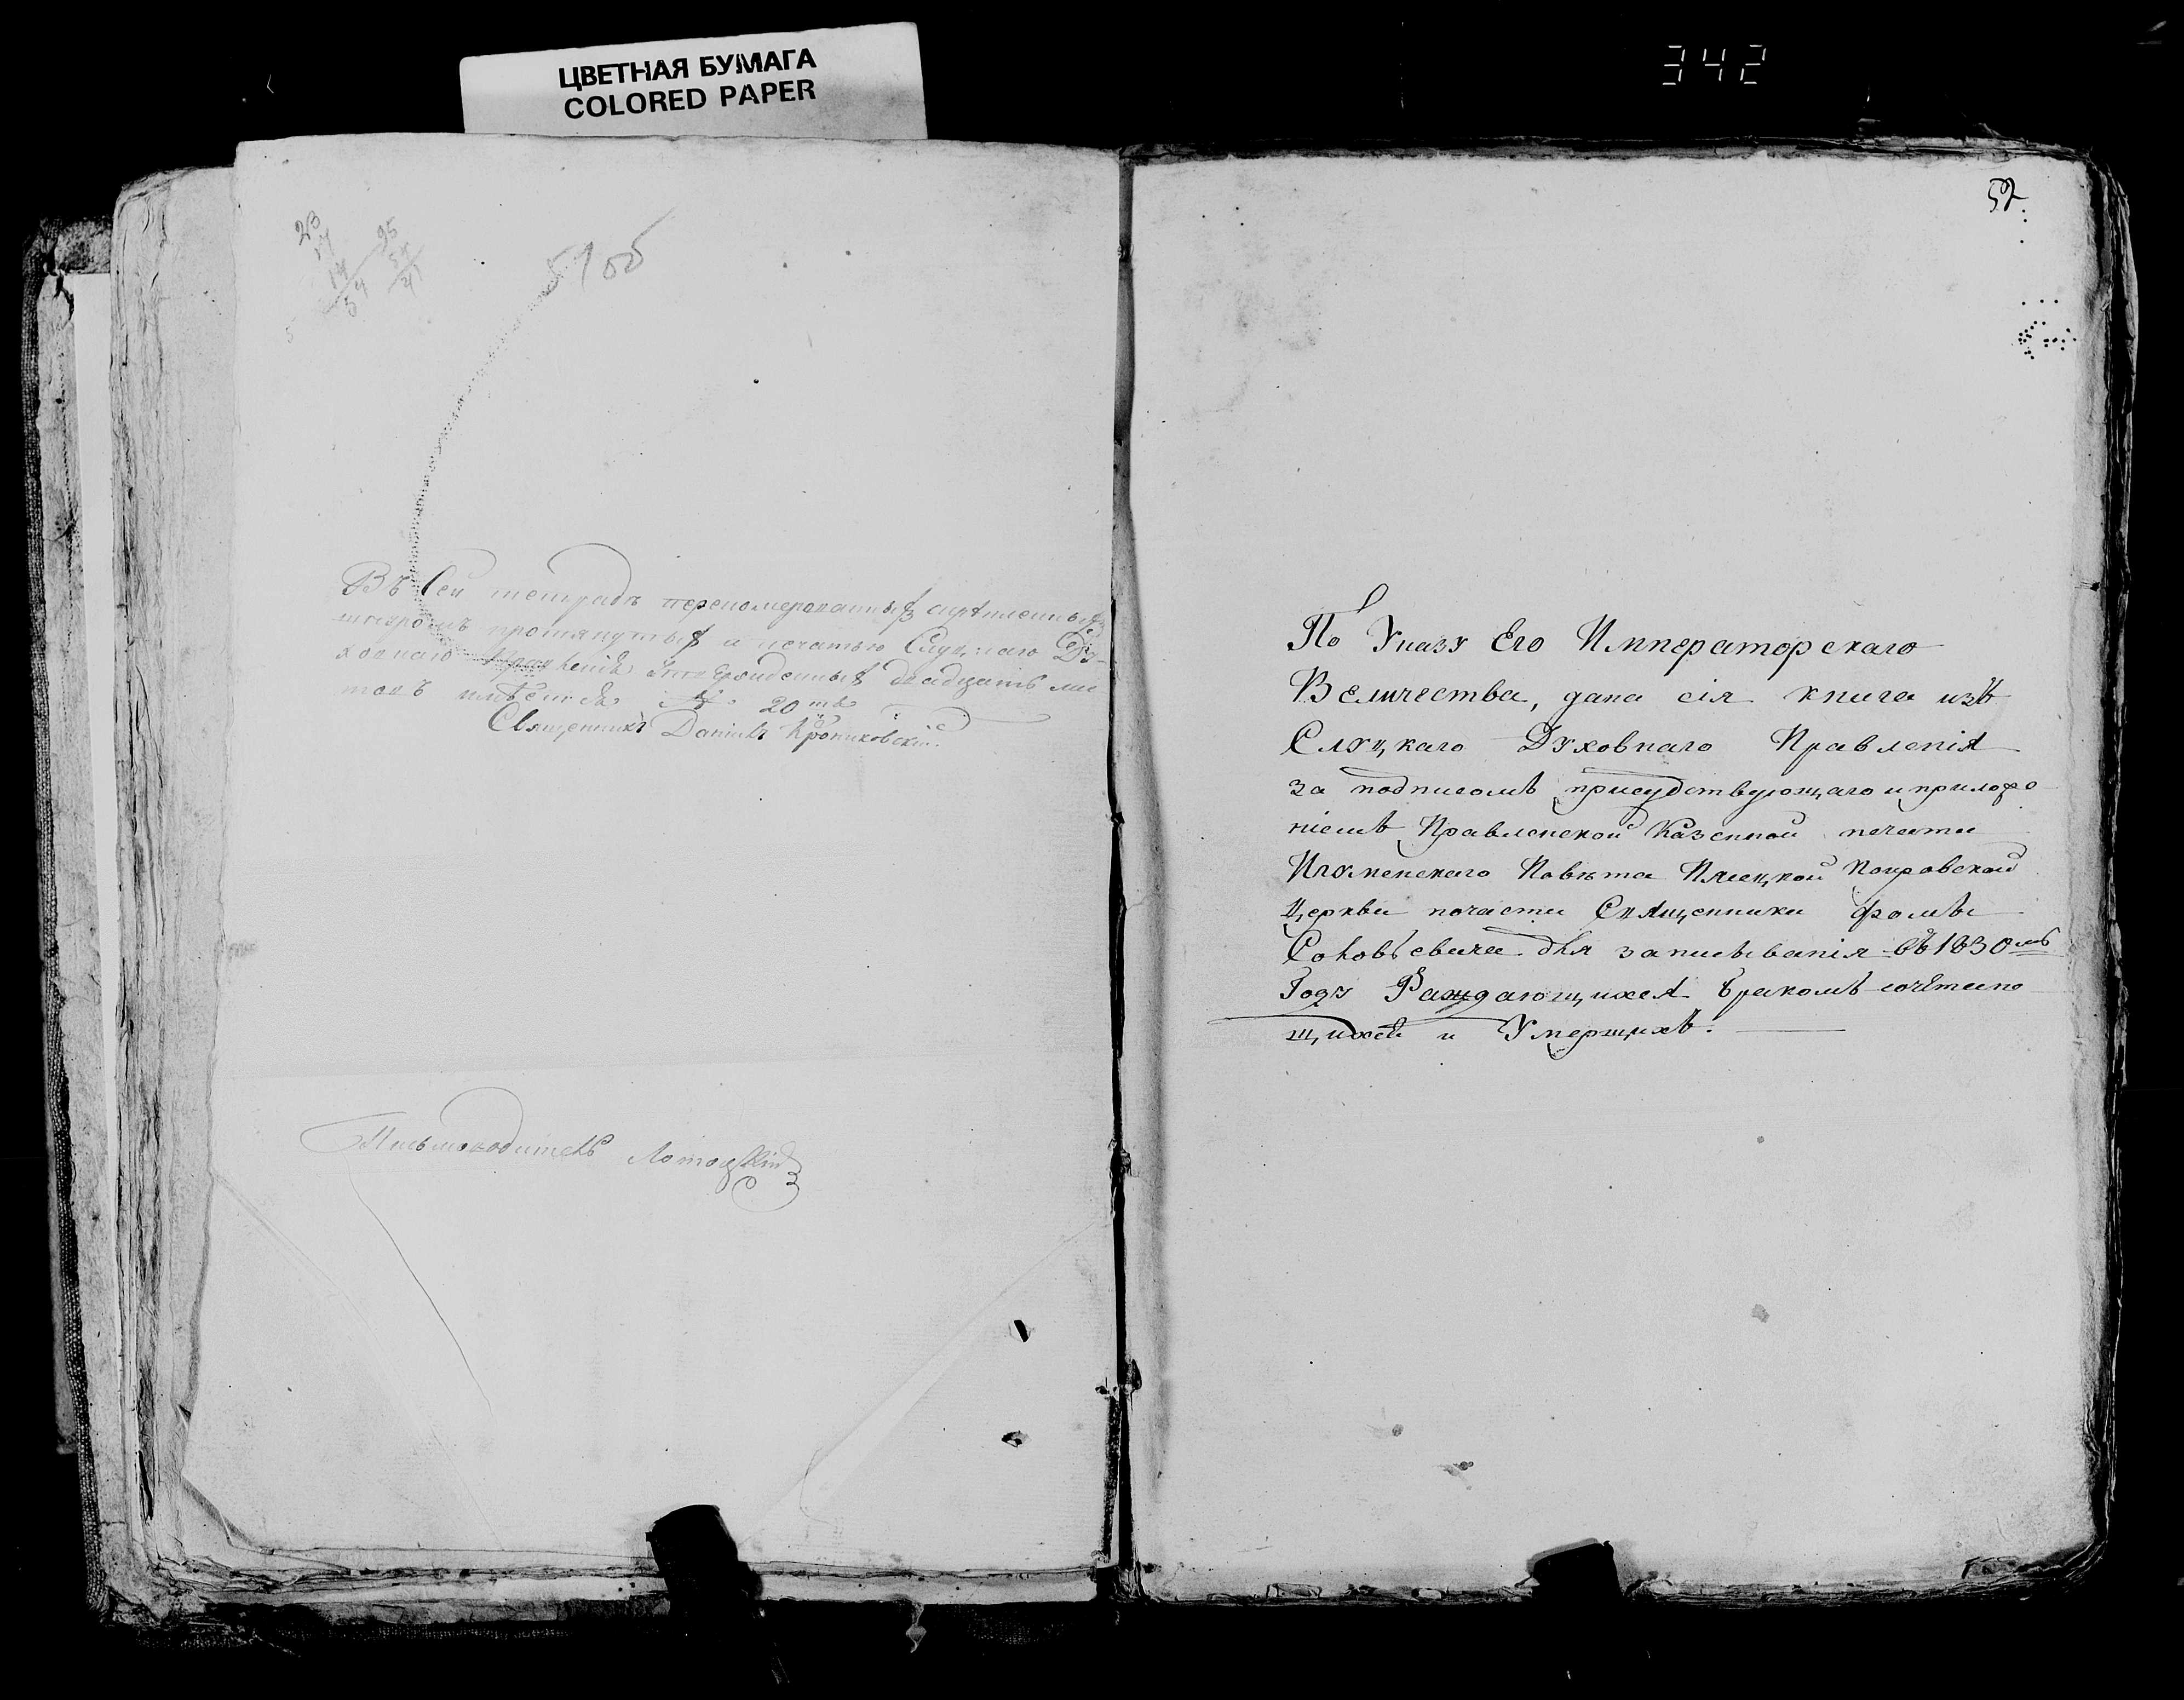 ЦВЕТНАЯ БУМАГА
COLORED PAPER
342
23
17
14
54
95
54
41
5105
Въ Сей тетрадѣ перенумерованныхъ скрѣпленныхъ
шнуромъ протянутыхъ и печатью Слуцкаго Ду-
ховнаго Правленія двадцать ли
товъ имѣется № 20ть
Священникъ Даніилъ
Письмоводитель Лотоцкій
52
По Указу Его Императорскаго
Величества, дана сія книга изъ
Слуцкаго Духовнаго Правленія
за подписомъ присудствующаго и приложе
ніемъ Правленской Казенной печати
Игуменскаго Повѣта Покровской
Церкви почасти Священника Фомы
для записыванія въ 1830мъ
Году Раждающихся бракомъ сочетаю
щихся и Умерщихъ.